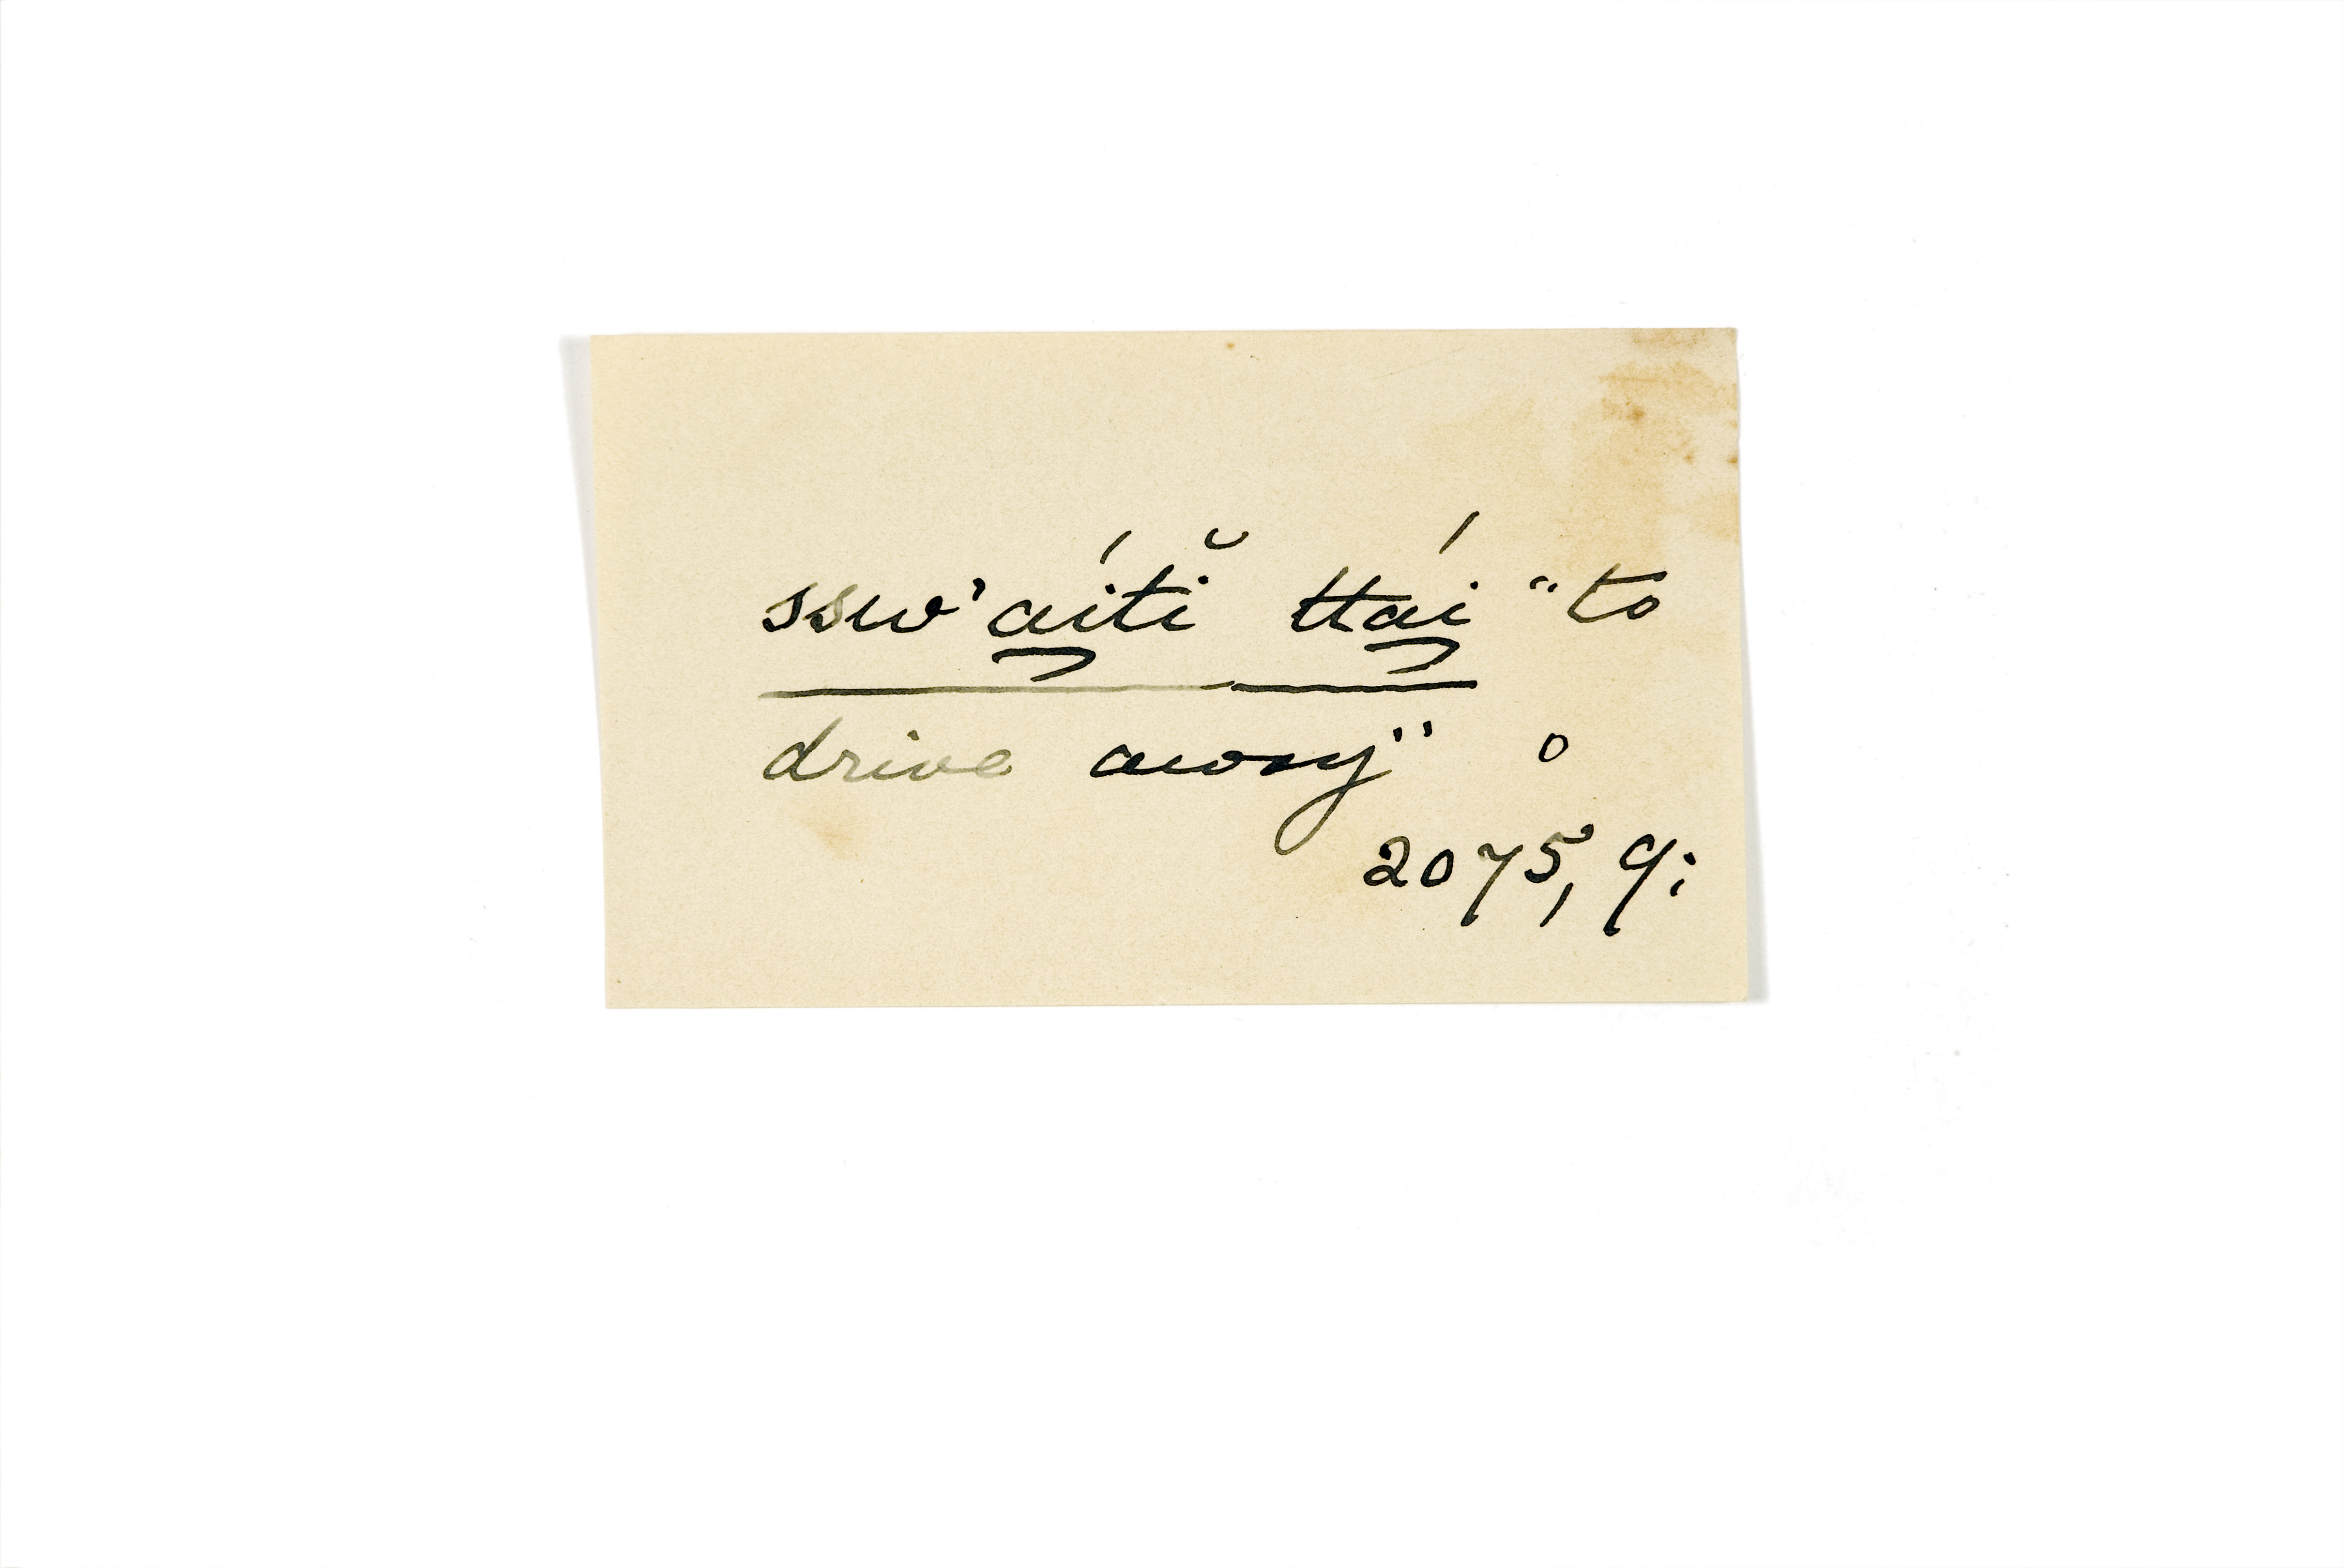 ssw'a̰ítĭ tta̰í "to
drive away" o
2075, 9;